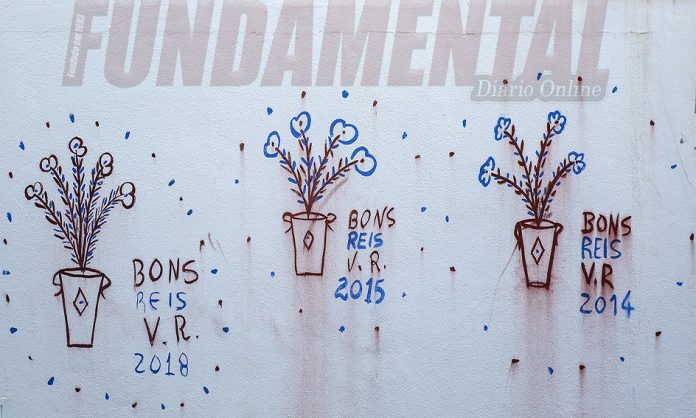 Fundado em 1993
FUNDAMENTAL
Diário Online
BONS
REIS
V.R.
2018
BONS
REIS
V.R.
2015
BONS
REIS
V.R
2014